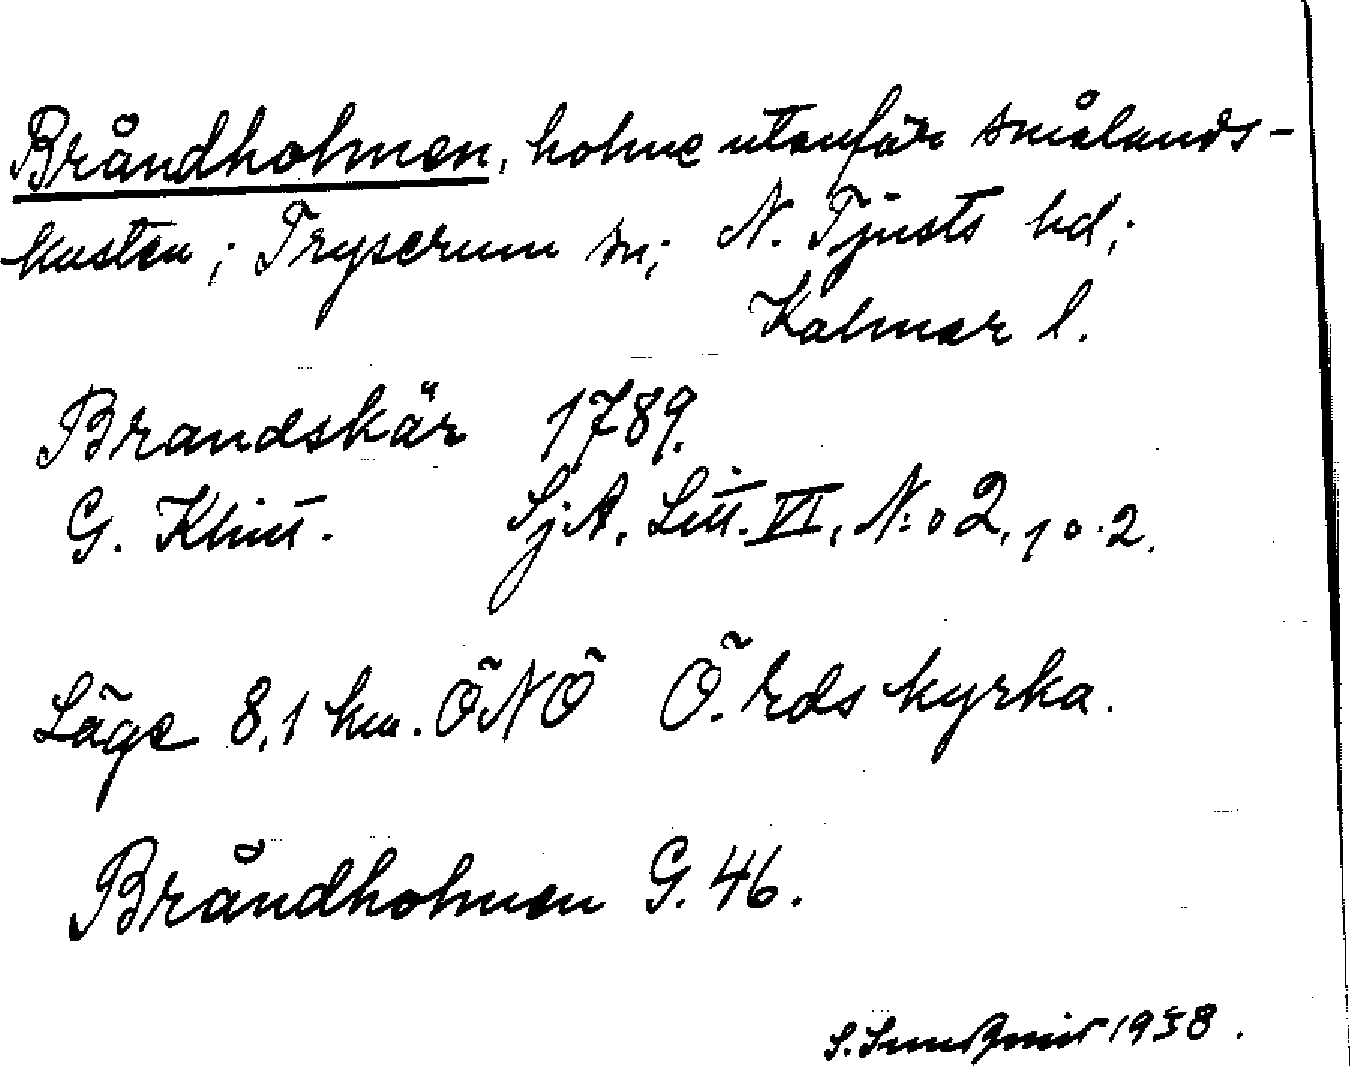 Bråndholmen, holme utanför smålands-
kusten; Tryserum sn; N. Tjusts hd;
Kalmar l.
Brandskär 1789.
G. Klint. SjA. Litt. VI, N:o 2, 1 o. 2.
Läge 8,1 km. ÖNÖ Ö. Eds kyrka.
Bråndholmen G. 46.
S. Sundquist 1938.